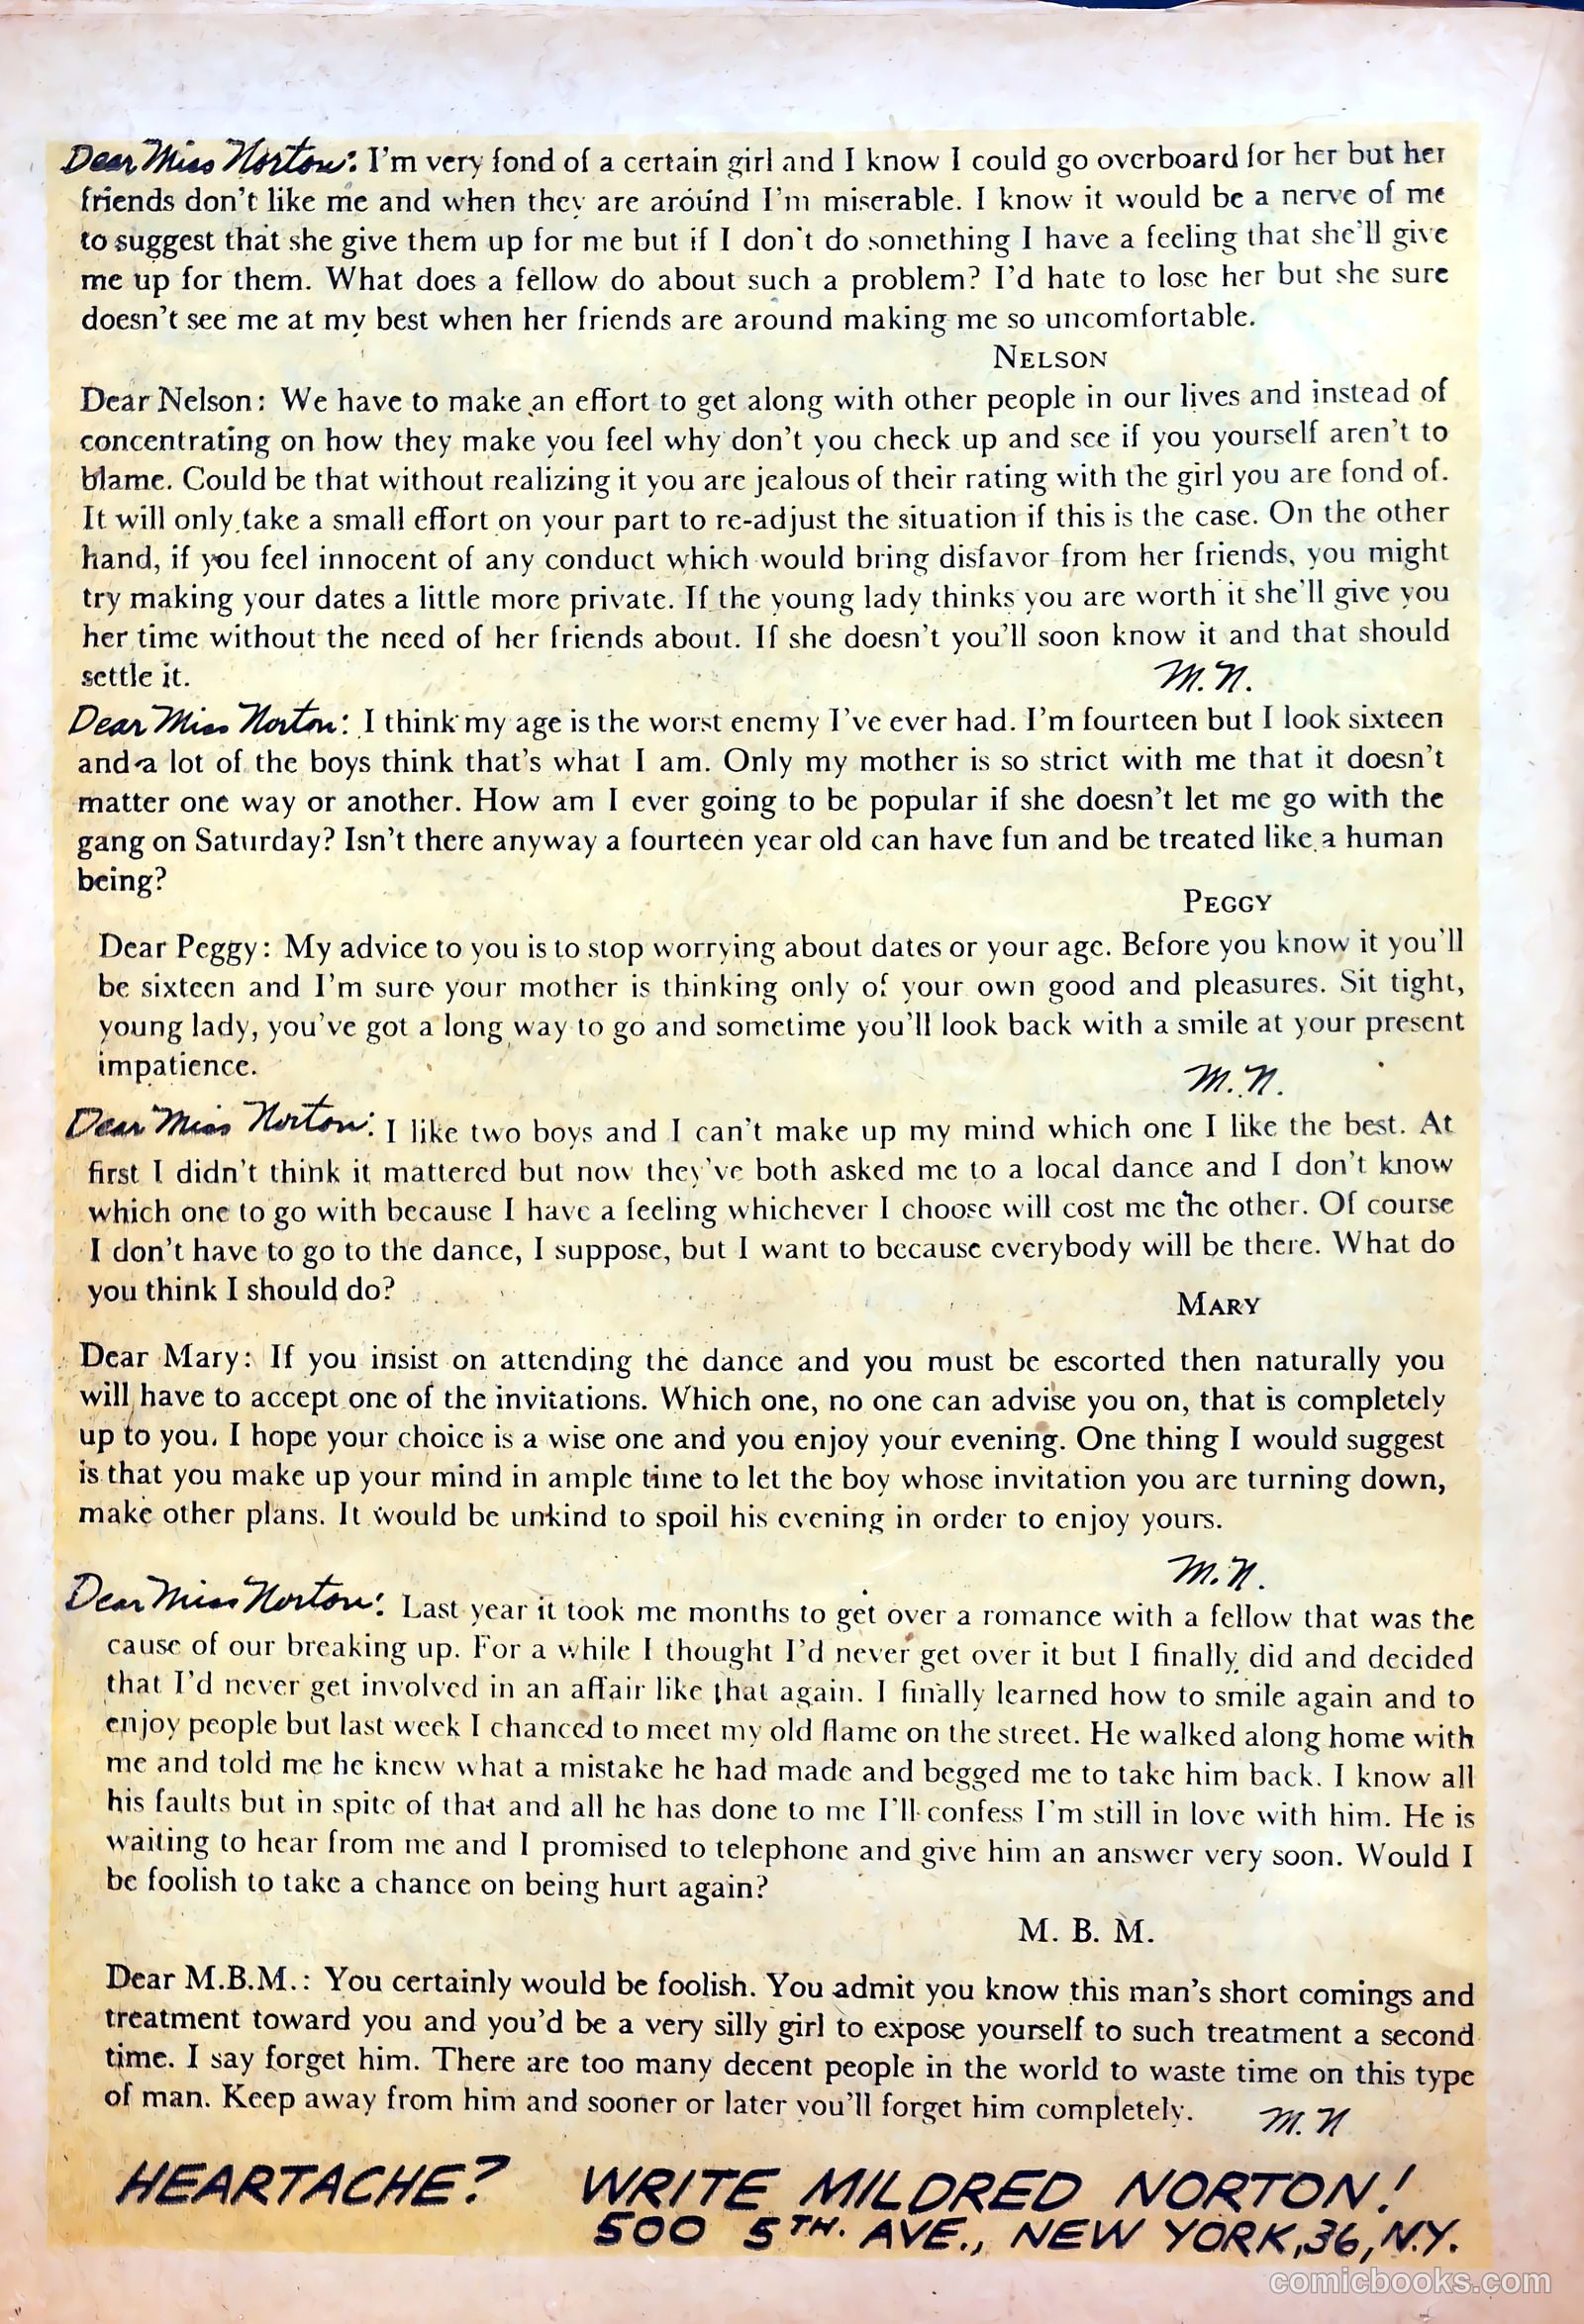 Dear Miss Norton: I'm very fond of a certain girl and I know I could go overboard for her but her
friends don't like me and when they are around I'm miserable. I know it would be a nerve of me
to suggest that she give them up for me but if I don't do something I have a feeling that she'll give
me up for them. What does a fellow do about such a problem? I'd hate to lose her but she sure
doesn't see me at my best when her friends are around making me so uncomfortable.
NELSON
Dear Nelson: We have to make an effort to get along with other people in our lives and instead of
concentrating on how they make you feel why don't you check up and see if you yourself aren't to
blame. Could be that without realizing it you are jealous of their rating with the girl you are fond of.
It will only take a small effort on your part to re-adjust the situation if this is the case. On the other
hand, if you feel innocent of any conduct which would bring disfavor from her friends, you might
try making your dates a little more private. If the young lady thinks you are worth it she'll give you
her time without the need of her friends about. If she doesn't you'll soon know it and that should
settle it. M.N.
Dear Miss Norton: I think my age is the worst enemy I've ever had. I'm fourteen but I look sixteen
and a lot of the boys think that's what I am. Only my mother is so strict with me that it doesn't
matter one way or another. How am I ever going to be popular if she doesn't let me go with the
gang on Saturday? Isn't there anyway a fourteen year old can have fun and be treated like a human
being?
PEGGY
Dear Peggy: My advice to you is to stop worrying about dates or your age. Before you know it you'll
be sixteen and I'm sure your mother is thinking only of your own good and pleasures. Sit tight,
young lady, you've got a long way to go and sometime you'll look back with a smile at your present
impatience. M.N.
Dear Miss Norton: I like two boys and I can't make up my mind which one I like the best. At
first I didn't think it mattered but now they've both asked me to a local dance and I don't know
which one to go with because I have a feeling whichever I choose will cost me the other. Of course
I don't have to go to the dance, I suppose, but I want to because everybody will be there. What do
you think I should do?
MARY
Dear Mary: If you insist on attending the dance and you must be escorted then naturally you
will have to accept one of the invitations. Which one, no one can advise you on, that is completely
up to you. I hope your choice is a wise one and you enjoy your evening. One thing I would suggest
is that you make up your mind in ample time to let the boy whose invitation you are turning down,
make other plans. It would be unkind to spoil his evening in order to enjoy yours.
M.N.
Dear Miss Norton: Last year it took me months to get over a romance with a fellow that was the
cause of our breaking up. For a while I thought I'd never get over it but I finally did and decided
that I'd never get involved in an affair like that again. I finally learned how to smile again and to
enjoy people but last week I chanced to meet my old flame on the street. He walked along home with
me and told me he knew what a mistake he had made and begged me to take him back. I know all
his faults but in spite of that and all he has done to me I'll confess I'm still in love with him. He is
waiting to hear from me and I promised to telephone and give him an answer very soon. Would I
be foolish to take a chance on being hurt again?
M. B. M.
Dear M.B.M.: You certainly would be foolish. You admit you know this man's short comings and
treatment toward you and you'd be a very silly girl to expose yourself to such treatment a second
time. I say forget him. There are too many decent people in the world to waste time on this type
of man. Keep away from him and sooner or later you'll forget him completely. M.N
HEARTACHE? WRITE MILDRED NORTON!
500 5TH. AVE., NEW YORK, 36, N.Y.
comicbooks.com